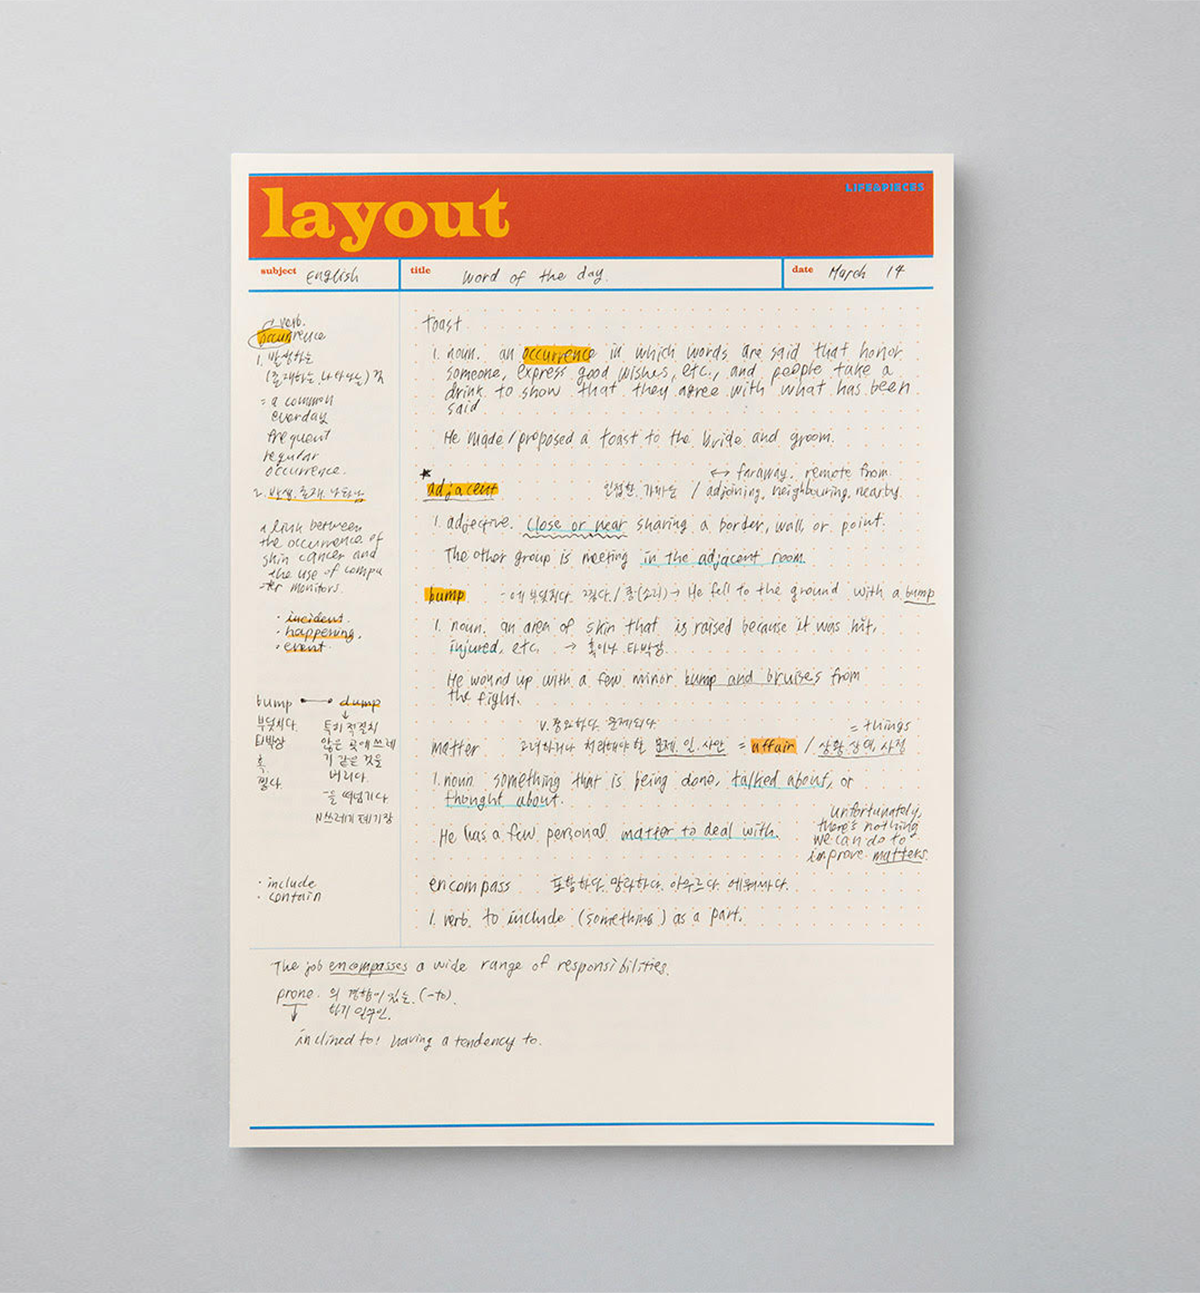 layout
LIFE&PIECES
subject English
title Word of the day.
date March 14
verb.
occurrence
1. 발생하는
(존재하는, 나타나는) 것
= a common
everday
frequent
regular
occurrence.
2. 발생, 존재, 나타남
a link between
the occurrence of
skin cancer and
the use of compu
-ter monitors.
· incident.
· happening.
· event.
bump dump
부딪치다. 특히 적절치
타박상 않은 곳에 쓰레
혹. 기 같은 것을
찧다. 버리다.
~을 떠넘기다.
N 쓰레기 폐기장
· include
· contain
toast
1. noun. an occurrence in which words are said that honor
someone, express good wishes, etc., and people take a
drink to show that they agree with what has been
said
He made/proposed a toast to the bride and groom.
↔ faraway, remote from
* adjacent 인접한, 가까운 / adjoining, neighbouring, nearby
1. adjective. close or near sharing a border, wall or point.
The other group is meeting in the adjacent room.
bump -에 부딪치다. 찧다. / 쿵(소리) → He fell to the ground with a bump
1. noun. an area of skin that is raised because it was hit,
injured, etc. → 혹이나 타박상.
He wound up with a few minor bump and bruises from
the fight.
v. 중요하다. 문제되다. = things
matter 고려하거나 처리해야 할 문제, 일, 사안 = affair / 상황, 상태, 사정
1. noun something that is being done, talked about, or
thought about.
He has a few personal matter to deal with.
unfortunately,
there's nothing
we can do to
improve matters.
encompass 포함하다. 망라하다. 아우르다. 에워싸다.
1. verb. to include (something) as a part.
The job encompasses a wide range of responsibilities.
prone. 의 경향이 있는. (-to).
하기 쉬운.
inclined to! having a tendency to.